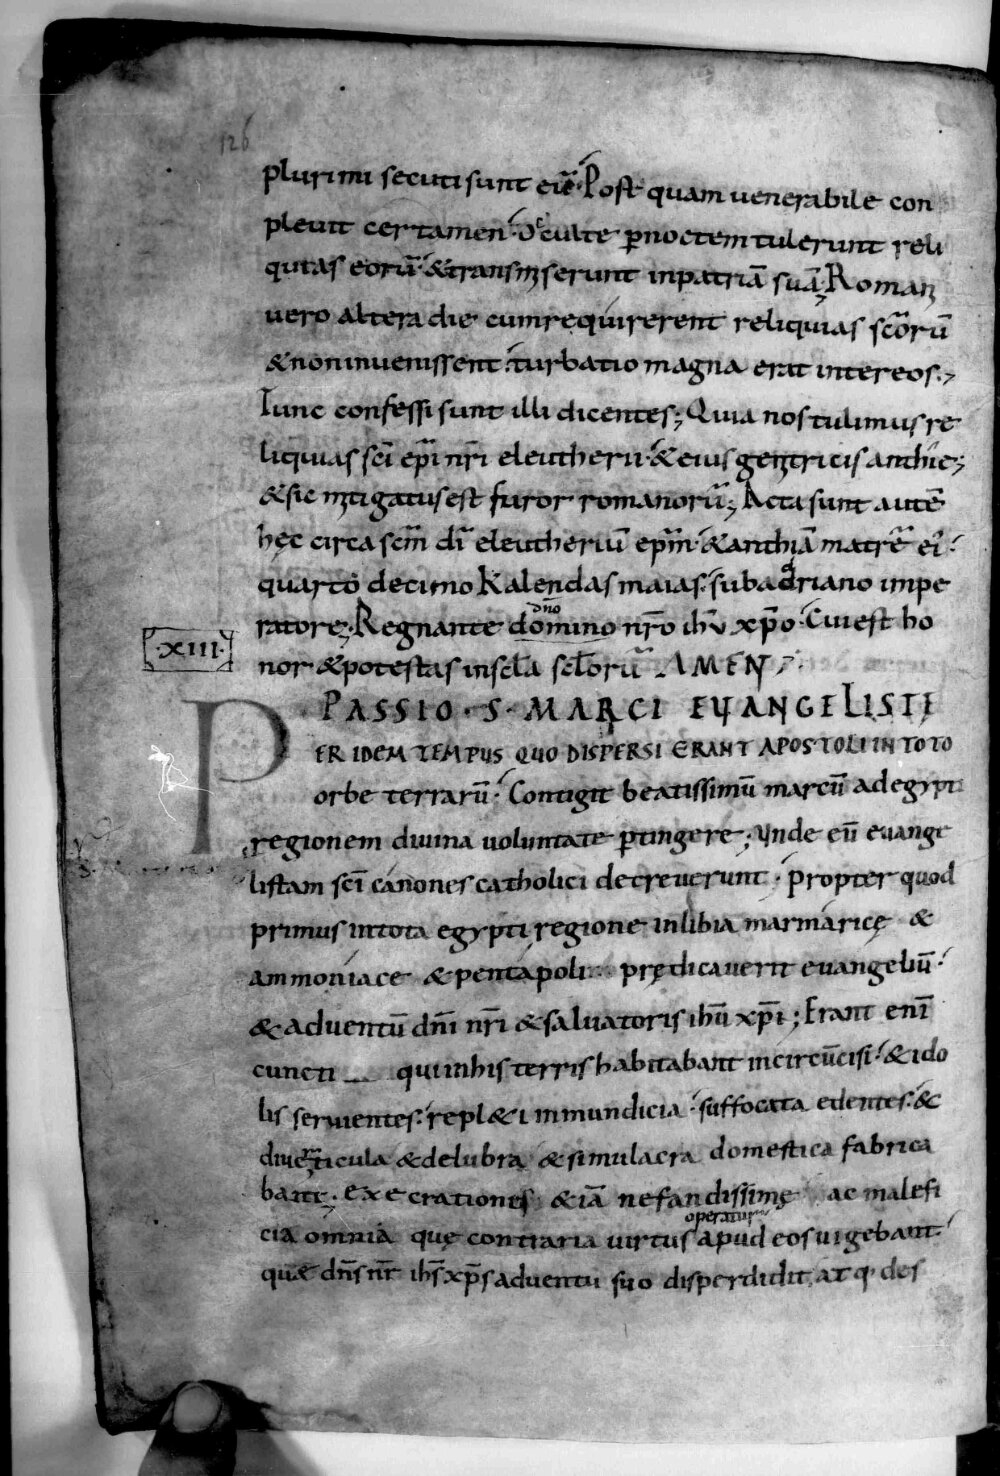 126
plurimi secuti sunt eiꝰ. Post quam uenerabile con
pleuit certamen. Occulte p̱noctem tulerunt reli
quias eorū. &transmiserunt inpatriā suā; Romani
uero altera die cumrequirerent reliquias scōrū
&noninuenissent. turbatio magna erat intereos;
Tunc confessi sunt illi dicentes; Quia nos tulimus re
liquias scī ep̄i nr̄i eleutherii. &eius genitricis anthię;
&sic mitigatus est furor romanorū; Acta sunt autē
hęc circa scm̄ dī eleutheriū ep̄m. &anthiā matrē eiꝰ.
quarto decimo Kalendas maias. sub adriano impe
ratore; Regnante domino nr̄o ihū xp̄o. Cui est ho
dn̄o
nor &potestas inscła scłorū AMEN;
·XIII·
PASSIO · S · MARCI EUANGELISTE
PER IDEM TEMPUS QUO DISPERSI ERANT APOSTOLI IN TOTO
orbe terrarū. Contigit beatissimū marcū ad egypti
regionem diuina uoluntate p̱tingere; Unde eū euange
listam scī canones catholici decreuerunt. propter quod
primus intota egypti regione inlibia marmaricę &
ammoniace &pentapoli prędicauerit euangeliū.
&aduentū dn̄i nr̄i &saluatoris ihū xp̄i; Erant enī
cuncti qui inhis terris habitabant incircūcisi. &ido
lis seruientes. repl&i inmundicia. suffocata edentes. &
diuerticula &delubra &simulacra domestica fabrica
bant; execrationes &iā nefandissimę ac malefi
cia omnia quę contraria uirtus apud eos uigebant.
operatur
quę dn̄s nr̄ ihs̄ xp̄s aduentu suo disperdidit, atq· des